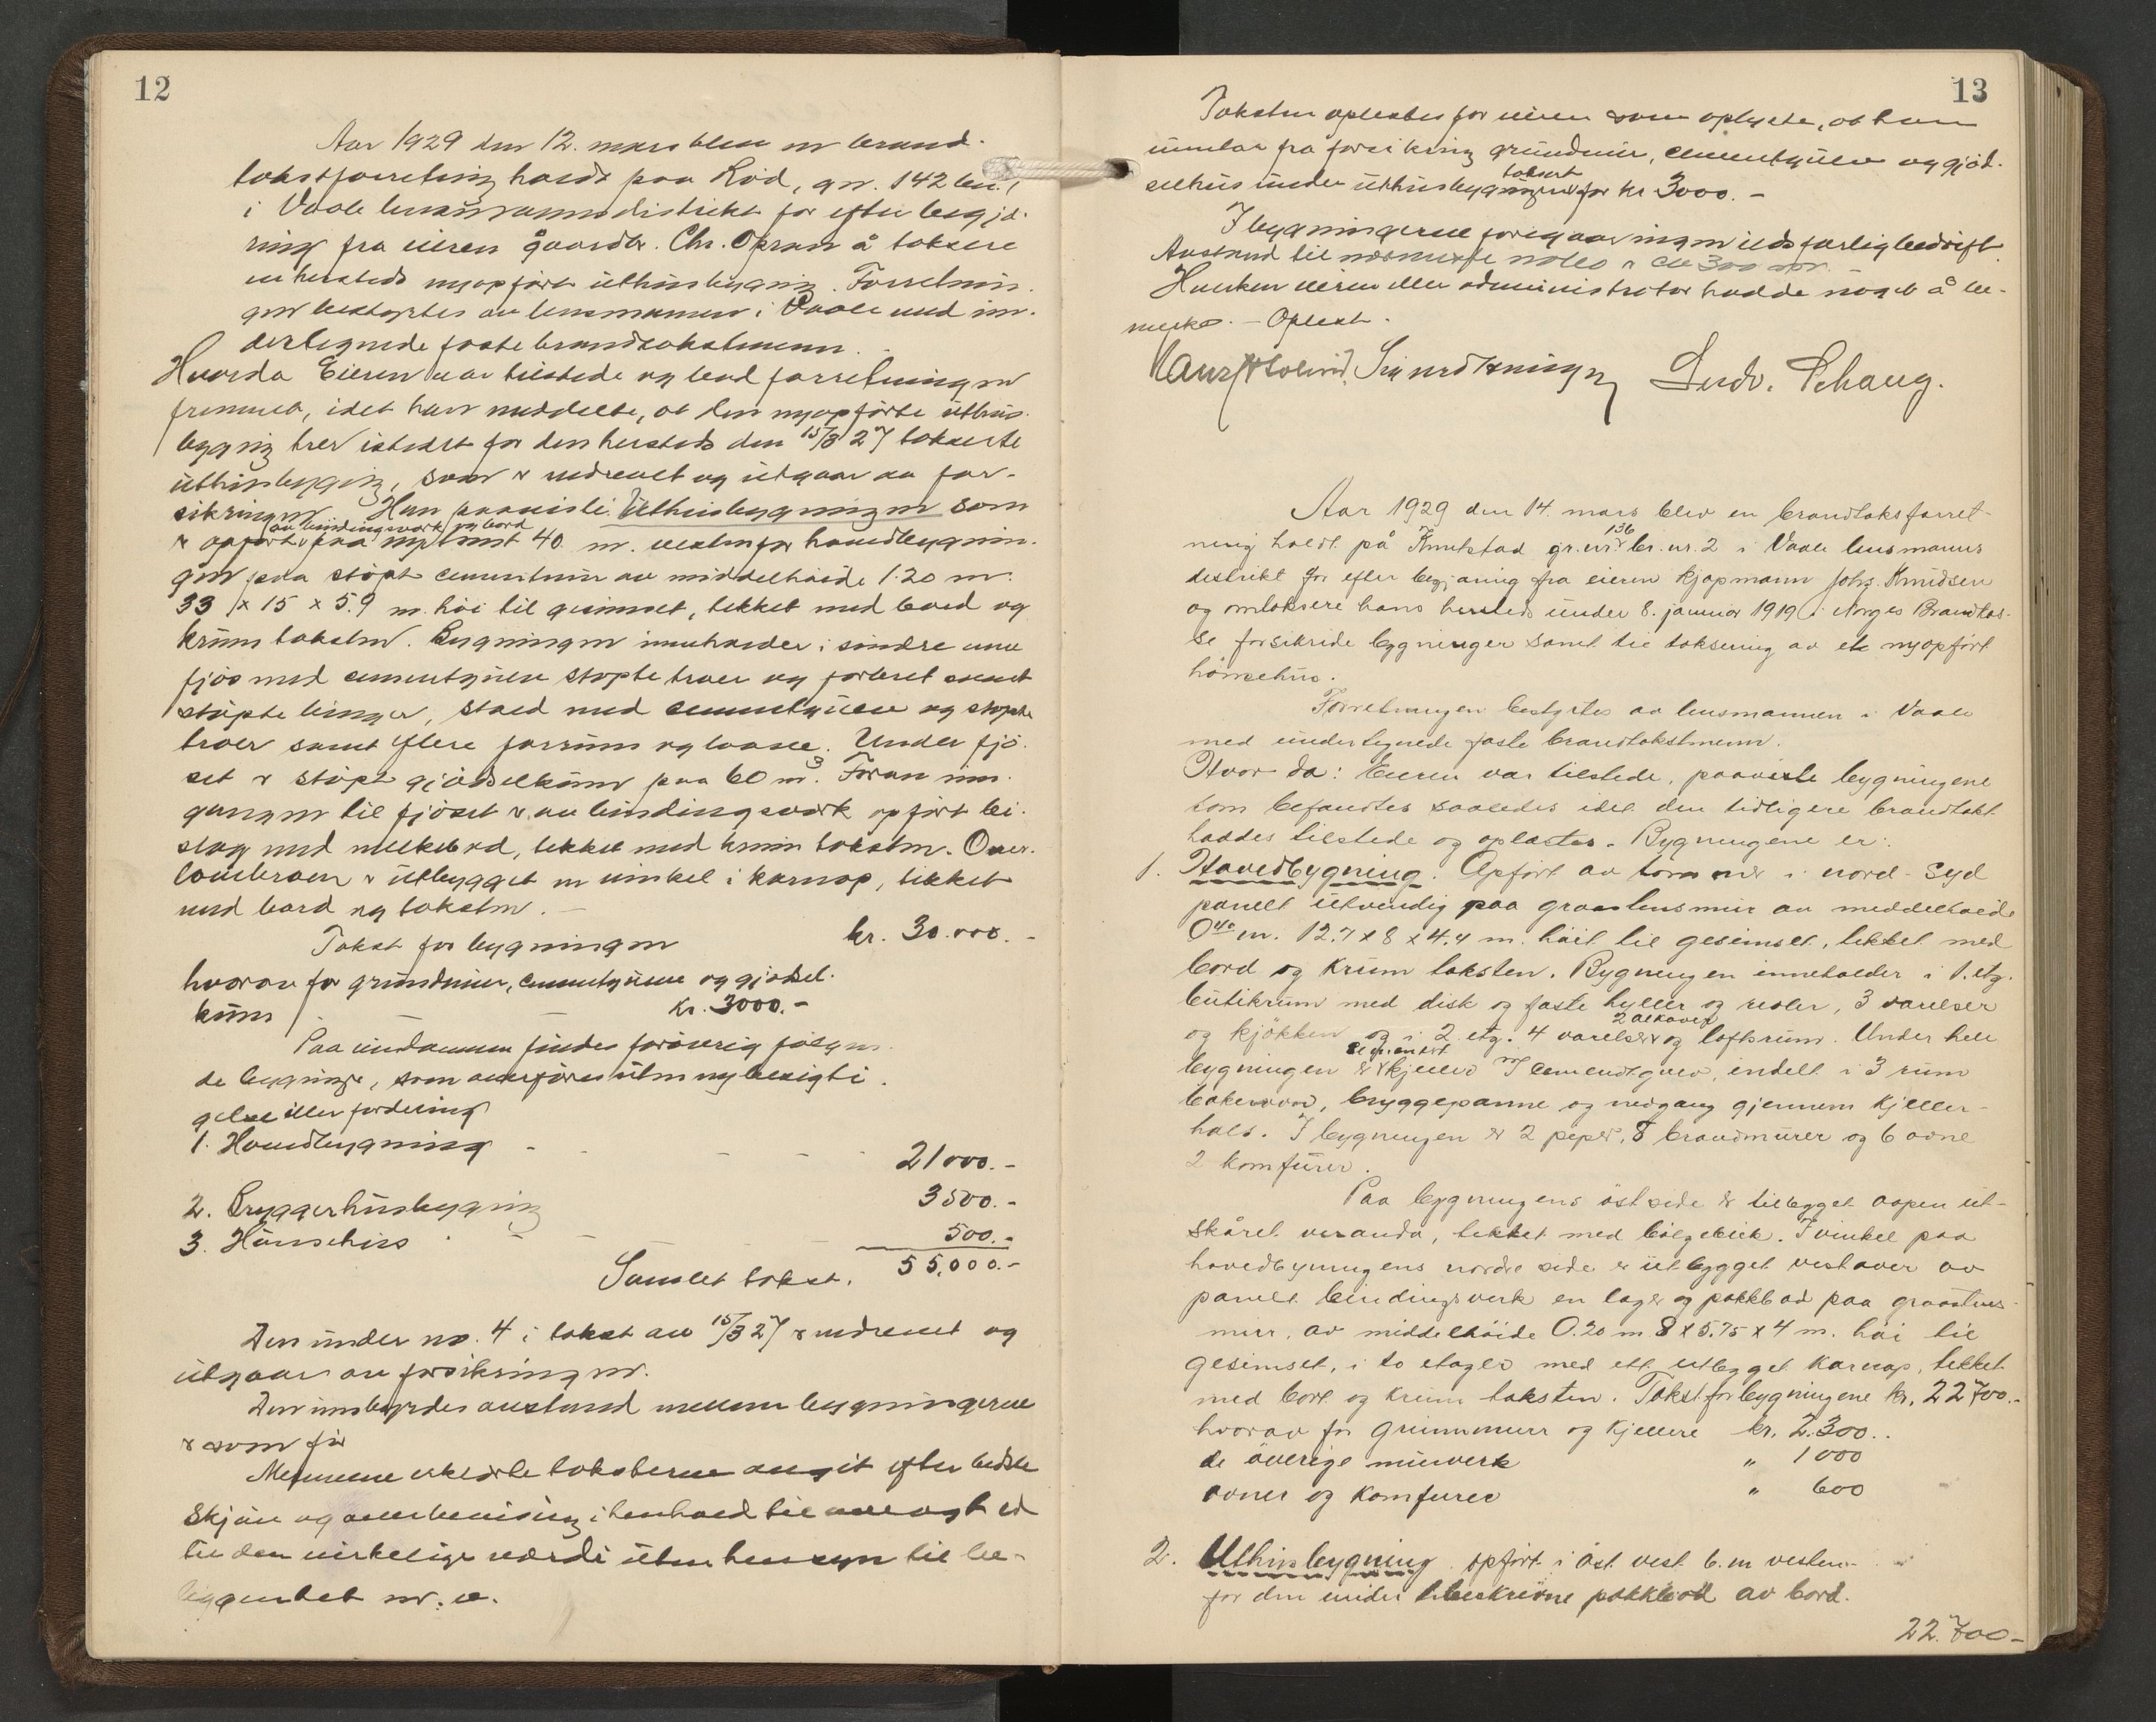 12
Aar 1929 den 12. mars blev en brand-
takstforretning holdt paa Rød, gn. 142 bn. 1
i Vaale lensmannsdistrikt for efter begjæ-
ring fra eieren gaardbr. Chr. Opran å taksere
en hersteds nyopført uthusbygning. Forretnin-
gen bestyrtes av lensmannen i Vaale med un-
dertegnede faste brandtakstmenn.
Hvorda Eieren var tilstede og bad forretningen
fremmet, idet han meddelte, at den nyopførte uthus-
bygning trer istedet for den hersteds den 15/3 27 takserte
uthusbygning, som er nedrevet og utgaar av for-
sikringen. Han paaviste: Uthusbygningen som
av bindingsverk og bord
er opført paa nytomt 40 m. vestenfor hovedbygnin-
gen paa støpt cementmur av middelhøide 1.20 m.
33 x 15 x 5.9 m. høi til gesimset, tekket med bord og
krum taksten. Bygningen inneholder i søndre ende
fjøs med cementgulv støpte traer og forbret samt
støpte binger, stald med cementgulv og støpte
traer samt flere forrum og laaver. Under fjø-
set er støpt gjødselkum paa 60 m³. Foran inn-
gangen til fjøset er av bindingsverk opført bi-
slag med melkebod, tekket med krum taksten. Over
laavebroen er utbygget en vinkel i karnap, tekket
med bord og taksten. —
Takst for bygningen kr. 30.000.-
hvorav for grundmur, cementgulve og gjødsel-
kum — — kr. 3000.-
Paa eiendommen findes forøvrig følgen-
de bygninger, som overføres uten ny besigti-
gelse eller fordeling
1. Hovedbygning - - - - 21000.-
2. Bryggerhusbygning 3500.-
3. Hønsehus - - - - 500.-
Samlet takst. 55,000.-
Den under no. 4 i takst av 15/3 27 er nedrevet og
utgaar av forsikringen.
Den innbyrdes avstand mellem bygningerne
er som før
Mennene erklærte taksterne avgit efter bedste
skjøn og overbevisning i henhold til avlagt ed
til den virkelige værdi uten hensyn til be-
liggenhet m. v.
13
Taksten oplæstes for eieren som oplyste, at han
unntar fra forsikring grundmur, cementgulv og gjød-
taksert
selhus under uthusbygningen for kr 3000.-
I bygningerne foregaar ingen ildsfarlig bedrift.
Avstand til nærmeste nabo er ca 300 m.
Hverken eieren eller administrator hadde noget å be-
merke. - Oplest.
Hans Holmid. Sigurd Henningsen Ludv. Schaug.
Aar 1929 den 14. mars blev en brandtaksforret-
136
ning holdt på Knutstad gr.nr. br. nr. 2 i Vaale lensmanns
distrikt for efter begjæring fra eieren kjøpmann Johs. Knudsen
og omtaksere hans hersteds under 8. januar 1919 i Norges Brandkas-
se forsikride bygninger samt til taksering av et nyopført
hønsehus.
Forretningen bestyrtes av lensmannen i Vaale
med undertegnede faste brandtakstmenn.
Hvor da: Eieren var tilstede, paaviste bygningene
som befandtes saaledes idet den tidligere brandtakt
haddes tilstede og oplæstes. Bygningene er:
1. Hovedbygning. Opført av tømmer i nord-syd
panelt utvendig paa graastensmur av middelhøide
0.40 m. 12.7 x 8 x 4.4 m. høit til gesimset, tekket med
bord og krum taksten. Bygningen inneholder i 1. etg.
butikrum med disk og faste hyller og reoler, 3 værelser
2 alkover
og kjøkken og i 2. etg. 4 værelser og loftsrum. Under hele
cementert
bygningen er kjeller m/ cementgulv, indelt i 3 rum
bakerovn, bryggepanne og nedgang gjennem kjeller-
hals. I bygningen er 2 piper, 8 brandmurer og 6 ovne
2 komfurer.
Paa bygningens østside er tilbygget aapen ut-
skåret veranda, tekket med bølgeblik. I vinkel paa
hovedbyningens nordre side er utbygget vestover av
panelt bindingsverk en lager og pakkbod paa graastens-
mur, av middelhøide 0.20 m. 8 x 5.75 x 4 m. høi til
gesimset, i to etager med ett utbygget karnap, tekket
med bort og krum taksten. Takst for bygningene kr. 22700.-
hvorav for grunnmurr og kjellere kr. 2.300..
de øverige murverk " 1000
ovner og komfurer " 600
2. Uthusbygning opført i øst vest 6. m vesten-
for den under 1 beskrevne pakkbod av bord.
22.700-